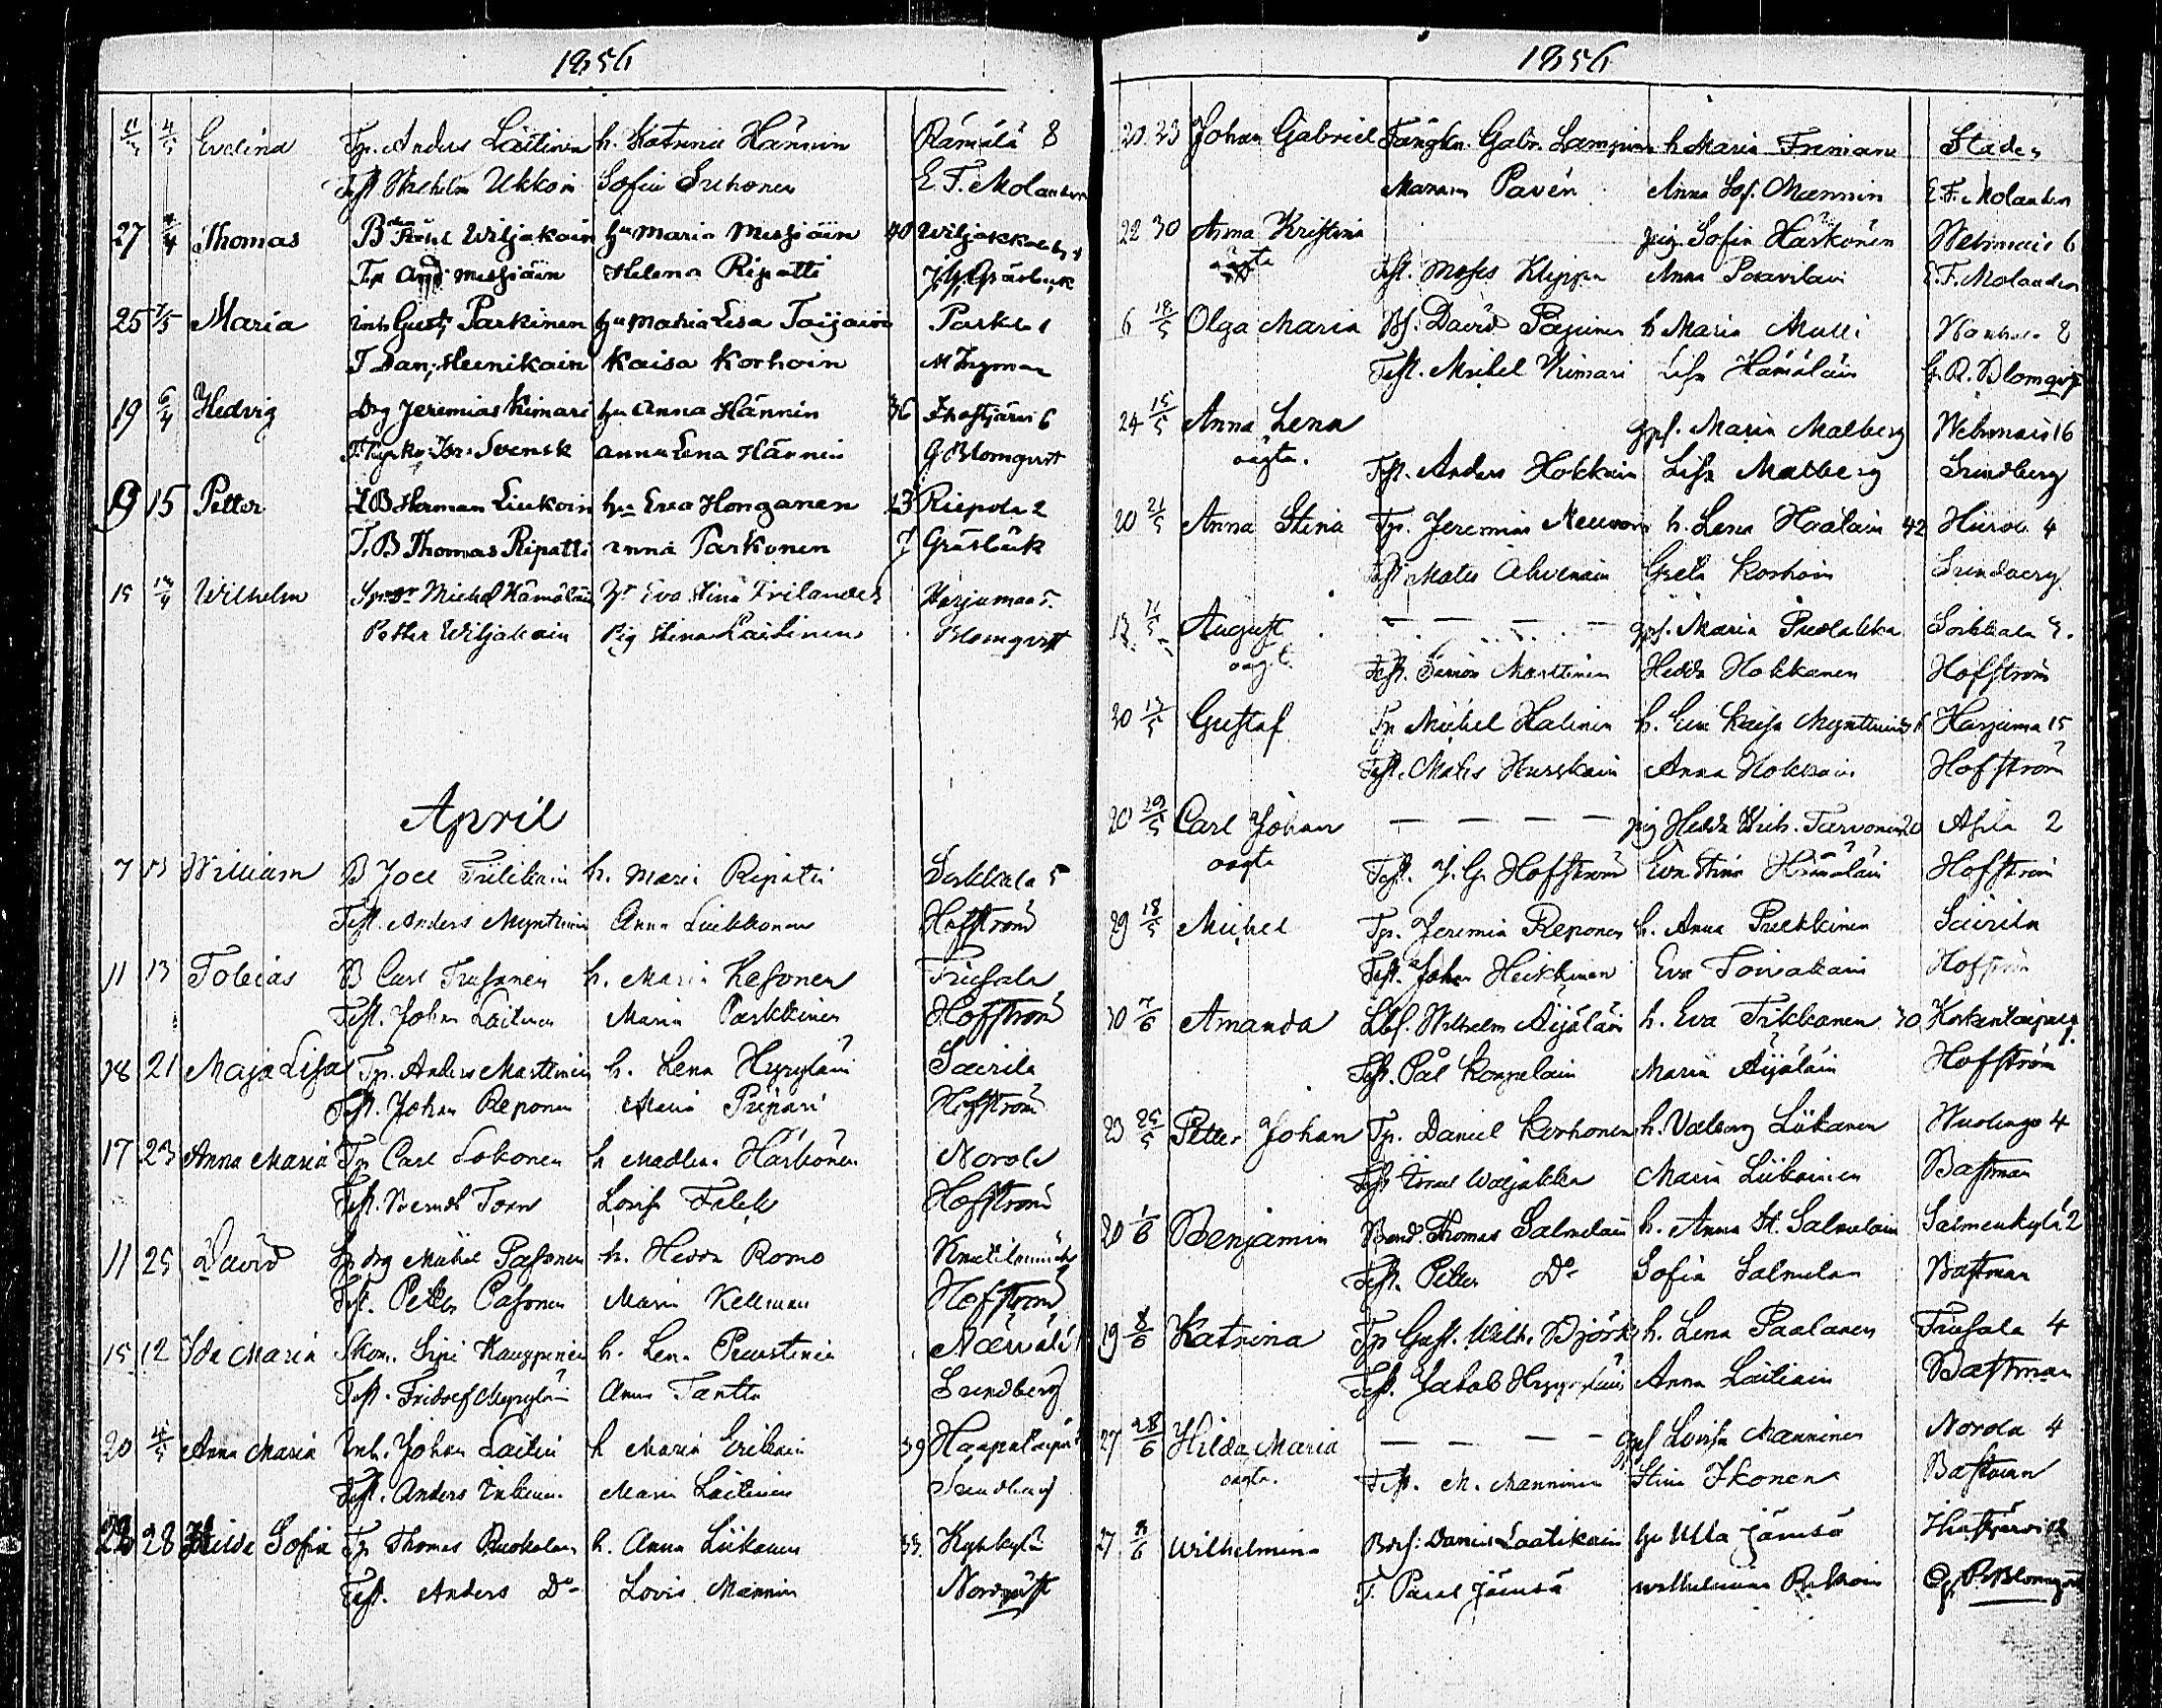 1856
Evelina Tp. Anders Laitinen h. Katrina Hännin Rämälä 8
Test Wilhelm Ukkoin Sofia Suhonen E F. Molander
27 Thomas Wiljakain hu Maria Missiäin 40
Tp And Missiäin Helena Ripatti
25 Maria Inh Gust Parkinen hu Maria Lisa Taijain Parkila 1
T Dan; Heinikain Kaisa Korhoin M Nyman
19 6/4 Hedvig Drg Jeremias Kimari hu Anna Hännin 36 6
Svensk Anna Lena Hännin G Blomqvist
19 15 Petter Herman Liukoin hu Eva Honganen 23 Riepola 2
T. B Thomas Ripatti Anna Parkonen Gråsbäck
15 Wilhelm Michel Hämäläin hr Eva Stina Frilander Harjumaa 5.
Petter Wiljakain Pig Stina Laitinen Blomqvist
April
7 13 William B Joel Tiilikain h. Maria Ripatti Sorkkala 5
Test. Anders Myntinen Anna Liukkonen Hofström
11 13 Tobias B Carl Trusanen h. Maria Kesonen Triusala
Test. Johan Laitinen Maria Parkkinen Hofström
18 21 Maja Lisa Tp. Anders Marttinen h. Lena Hyryläin Sairila
Test. Johan Reponen Maria Pripari Hofström
17 23 Anna Maria Tp Carl Sokonen h Madlena Härkönen Norola
Test. Berndt Torn Lovisa Falck Hofström
11 25 David drg Mikhel Pasonen h. Hedda Romo
Test. Petter Pasonen Maria Kellman Hofström
15 12 Ida Maria Skom. Sipi Kauppinen h. Lena Puustinen
Test. Fridolf Myryläin Anna Tantta Sundberg
20 4/5 Anna Maria Inh. Johan Laitin h Maria Erikain 39
Test. Anders Inkinen Maria Laitinen Sundberg
28 Hilda Sofia Tp Thomas Ruokolain h. Anna Liikanen 33 Kyhkylä
Test. Anders Do Lovis Männin Nordqvist
1856
20 23 Johan Gabriel Fångkn. Gabr. Lampinen h Maria Friman Staden
Pavén Anna Sof. Mannin E. F. Molander
22 30 Anna Kristina pig. Sofia Härkönen Wehmais 6
oägta Test. Moses Klippa Anna Paavilain E. F. Molander
6 18/5 Olga Maria Bs. David Pajunen h Maria Mulli 8
Test. Mikhel Kimari Lisa Hämäläin G. R. Blomqvist
24 15/5 Anna Lena gps. Maria Malberg Wehmais 16
oägta. Test. Anders Hokkain Lisa Malberg Sundberg
20 21/5 Anna Stina Tp. Jeremias Neuvoin h. Lena Haalain 42 Hiirola 4
Test Mats Ahvenain Greta Korhoin Sundberg
August — — — — gps. Maria Pudlakka Sorkkala
oägt. Test. Simon Marttinen Hedda Hokkanen Hofström
30 Gustaf Tp Mikhel Halinen h. Eva Kaisa Harjuma 15
Test. Mats Hurskain Anna Hokkain Hofström
20 29/5 Carl Johan — — — — pig Hedda Tarvonen 20 Asila 2
oägta Test. J. G. Hofström Eva Stina Hämäläin Hofström
29 18/5 Michel Tp. Jeremia Reponen h. Anna Pulkkinen Sairila
Test. Johan Heikkinen Eva Toivakain Hofström
30 Amanda Wilhelm Äijäläin h. Eva Tikkanen 30
Test. Pål Kongelain Maria Äijäläin Hofström
23 25/5 Petter Johan Tp. Daniel Korhonen h. Valborg Liikanen Wuolingo 4
Test Wäljakka Maria Liikainen Bastman
20 1/6 Benjamin Bond. Thomas Salmelain h. Anna St. Salmelain Salmenkylä 2
Test. Petter Do Sofia Salmelan Bastman
19 8/6 Katrina Tp Gust. Wilh. Björk h. Lena Paalanen Triusala 4
Test. Jakob Hyyryläin Anna Laitiain Bastman
27 28/6 Hilda Maria — — — — gps Lovisa Manninen Norola 4
oägta. Test. M. Manninen Stina Ikonen Bastman
27 Wilhelmina Daniel Laatikain hu Ulla Jämsä
T. Paul Jämsä Wilhelmina Blomqvist